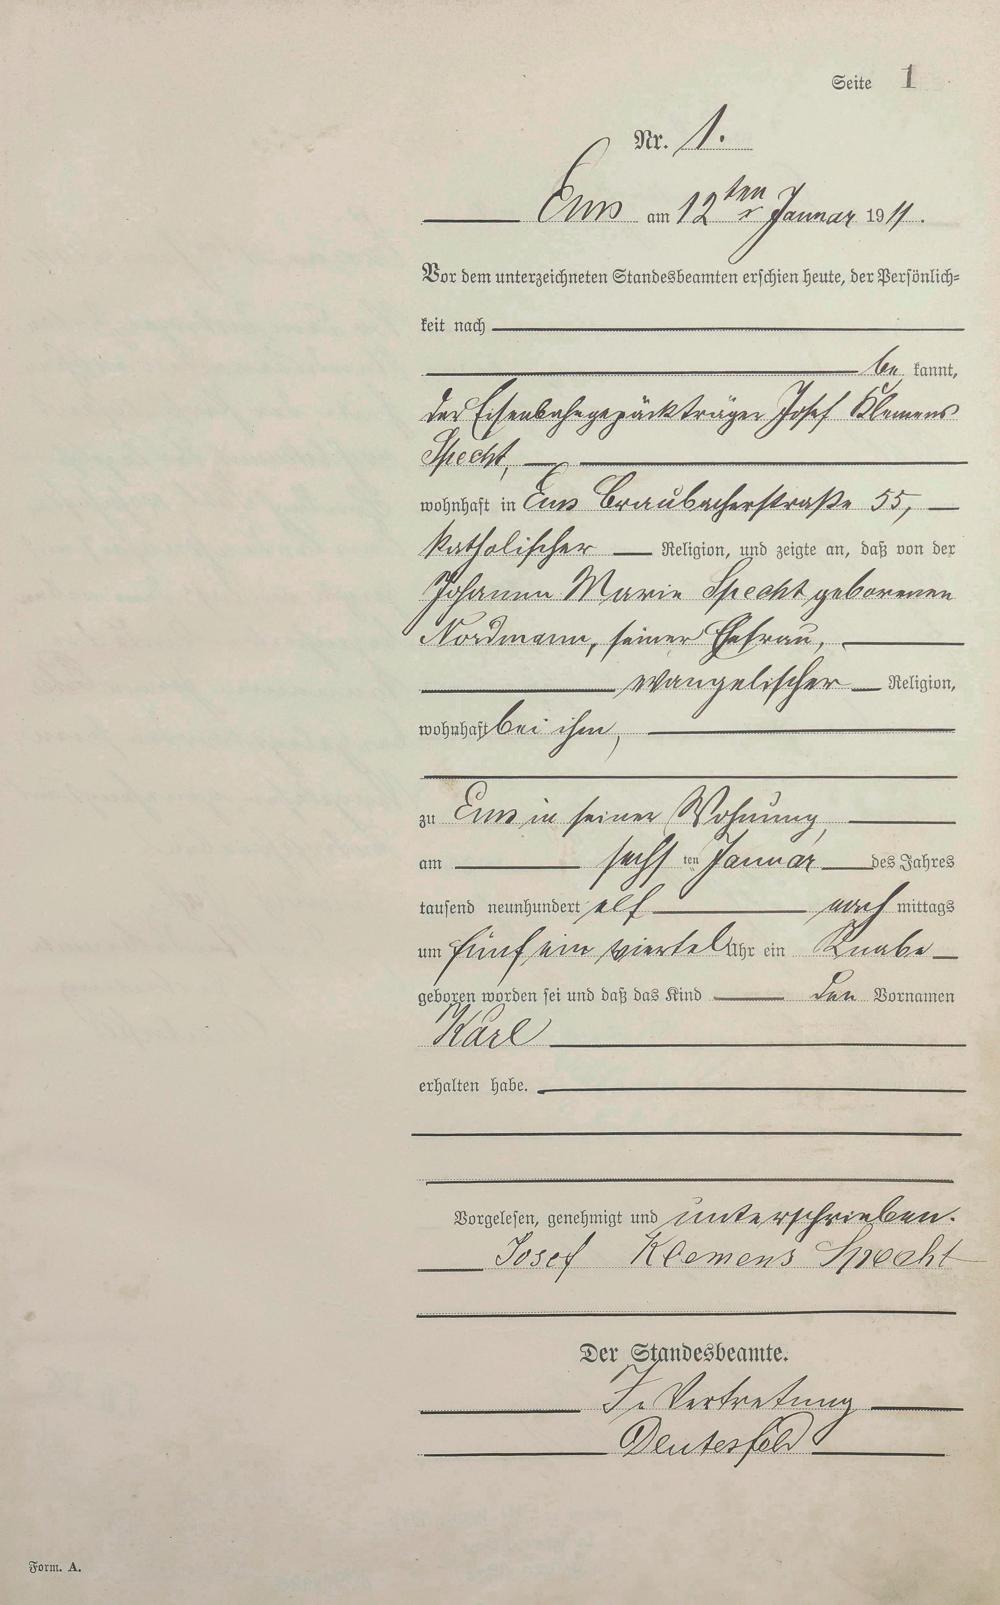 Seite 1
Nr. 1.
Ems am 12ten Januar 1911.
Vor dem unterzeichneten Standesbeamten erschien heute, der Persönlich=
keit nach
be kannt,
der Eisenbahngepäckträger Josef Klemens
Specht,
wohnhaft in Ems Braubacherstraße 55,
katholischer Religion, und zeigte an, daß von der
Johanna Marie Specht geborenen
Nordmann, seiner Ehefrau,
evangelischer Religion,
wohnhaft bei ihm,
zu Ems in seiner Wohnung,
am sechs ten Januar des Jahres
tausend neunhundert elf nach mittags
um fünf ein viertel Uhr ein Knabe
geboren worden sei und daß das Kind den Vornamen
Karl
erhalten habe.
Vorgelesen, genehmigt und unterschrieben.
Josef Klemens Specht
Der Standesbeamte.
In Vertretung
Deutesfeld
Form. A.